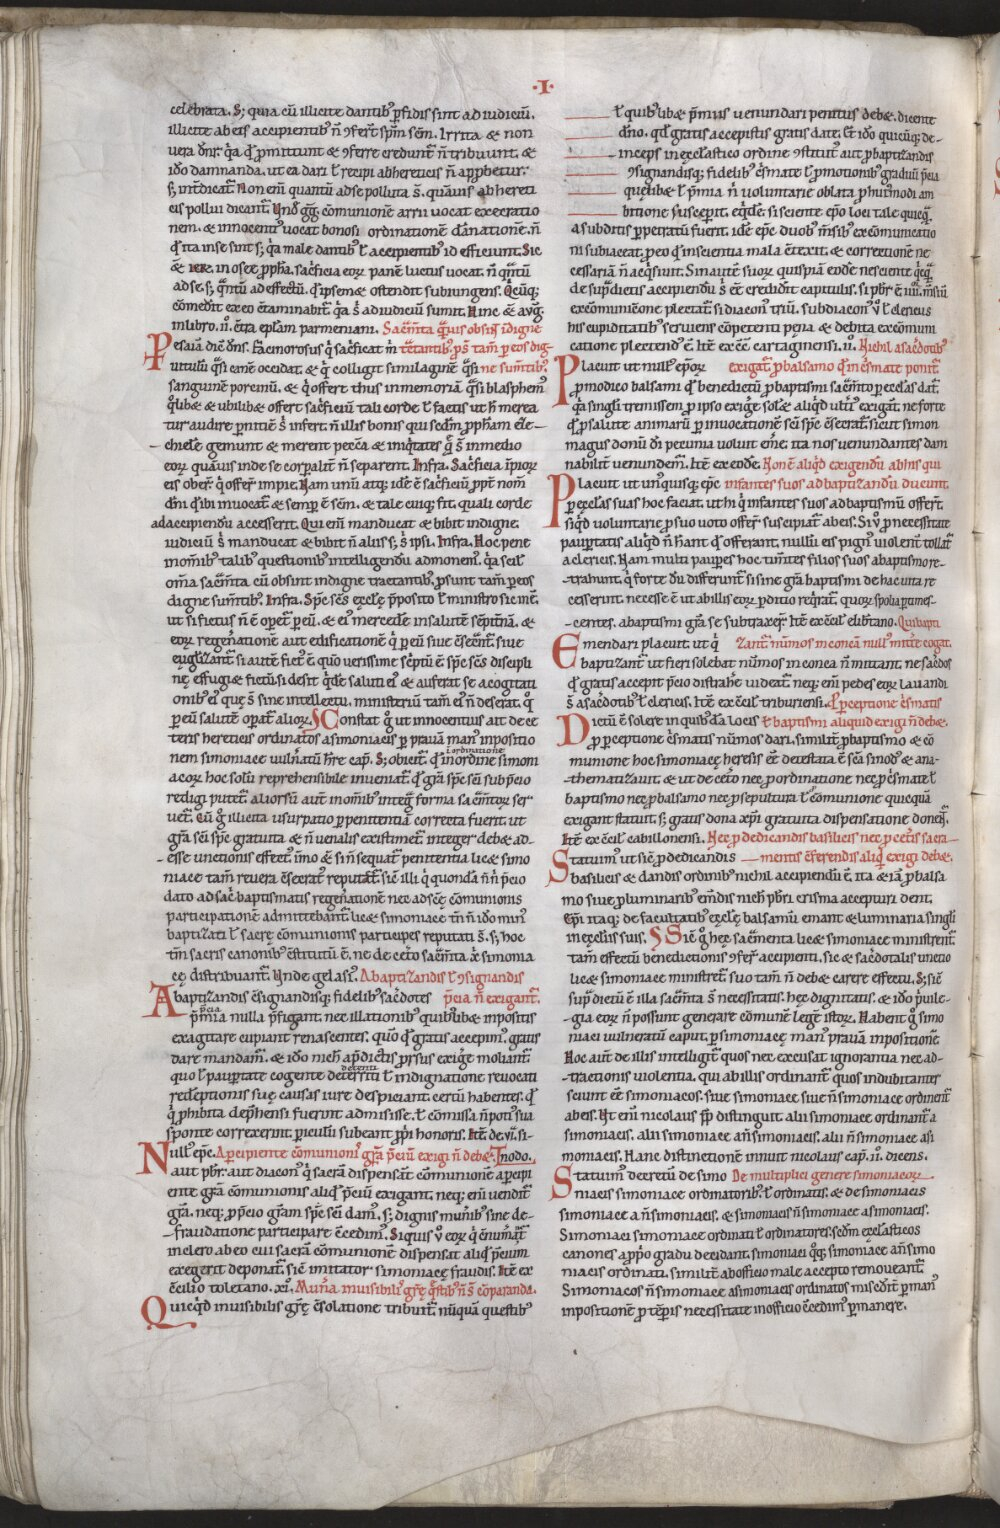 ·I·
celebrata. S; quia cũ illicite dantibꝰ ꝑfidis sint ad iudiciũ.
illicite ab eis accipientibꝰ ñ ꝯfert sp̃m sc̃m. Irrita & non
uera dñr. q̃a q̃ ꝓmittunt & ꝯferre credunt̃ ñ tribuunt. &
iđo damnanda. ut ea dari ł recipi ab hereticis ñ approbetur.
eis pollui dicant̃. Vnđ gg̃. cõmunionẽ arrii uocat execratio
nem. & innocentiꝰ uocat bonosi ordinationẽ dãnationẽ. ñ
q̃ ita in se sint s; q̃a male dantibꝰ ł accipientibꝰ id efficiunt. Sic
& iero. in osee ꝓpħa. sac̃ficia eorꝝ panẽ luctus uocat. ñ q̃ntũ
ad se. s; q̃ntũ ad effectũ. q̃ ipsemet ostendit subiungens. Q̃cũq;
comedit ex eo c̃taminabit̃. q̃a s̃ ad iudiciũ sumit. Hinc & aug̃.
in libro .ii. c̃tra ep̃lam parmeniani. Sac̃m̃ta q̃uis obsint ĩdigne
Per esaiã dic̃ dñs. Facinorosus q̃ sac̃ficat m̃ tc̃tantibꝰ. ꝓs̃ tam̃ ꝑ eos dig
uitulũ q̃si canẽ occidat. & q̃ colligit similaginẽ q̃si ne sum̃tibꝰ.
sanguinẽ porcinũ. & q̃ offert thus in memoriã q̃si blasphem̃
q̃libet & ubilibet offert sac̃ficiũ tali corde ł factis ut ħ merea
tur audire ꝑnitiẽ s̃ infert. ñ illis bonis qui scđm ꝓpħam eze
chielẽ gemunt & merent pecc̃a & iniq̃tates q̃ s̃ in medio
eorꝝ quãuis inde se corpalit̃ ñ separent. Infra. Sac̃ficia ĩpiorꝝ
eis oberꝰ q̃ offer̃ impie. Nam unũ atq; idẽ ẽ sac̃ficiũ ꝓpt̃ nom̃
dñi q̃ ibi inuocat̃ & semp̃ ẽ sc̃m. & tale cuiq; fit. quali corde
ad accipiendũ accesserit. Qui em̃ manducat & bibit indigne.
iudiciũ s̃ manducat & bibit ñ aliis s; s̃ ipsi. Infra. Hoc pene
in om̃ibꝰ talibꝰ questionibꝰ intelligendũ admonem̃. q̃a scil̃
om̃ia sac̃m̃ta cũ obsint indigne tractantibꝰ. ꝓsunt tam̃ ꝑ eos
digne sum̃tibꝰ. Infra. Sp̃c sc̃s eccłę p̃posito ł ministro sic inẽ.
ut si fictus ñ ẽ opet̃ ꝑ eũ. & eiꝰ mercedẽ in salutẽ sẽpitnã. &
eorꝝ regen̄ationẽ aut edificationẽ q̃ ꝑ eũ siue c̃secrñt̃. siue
eugłizant̃. si autẽ fictꝰ ẽ quõ uerissime sc̃ptũ ẽ sp̃c sc̃s discipli
nę effugiet fictũ. si desit q̃dẽ saluti eiꝰ & auferat se a cogitati
onibꝰ eiꝰ quę s̃ sine intellectu. ministeriũ tam̃ eiꝰ ñ deserat. q̊
ꝑ eũ salutẽ opat̃ aliorꝝ. Constat g̊ ut innocentius ait de ce
teris hereticis ordinatos a simoniacis ꝑ prauã manꝰ impositio
nem simoniace uuln̄atũ ħre cap̃. S; obicit̃. q̃ in ordine simoni
in ordinatione
acorꝝ hoc solũ reprehensibile inueniat̃. q̃ gr̃a sp̃c sc̃i sub p̃cio
redigi putet̃. aliorsũ aut̃ in om̃ibꝰ integ̃ forma sac̃m̃torꝝ ser
uet̃. Cũ g̊ illicita usurpatio ꝑ penitentiã correcta fuerit. ut
gr̃a sc̃i sp̃c gratuita & ñ uenalis existimet̃. integer debet ad
esse unctionis effect̃. ĩmo & si ñ sequat̃ penitentia licet simo
niace tam̃ reuera c̃secrat̃ reputat̃. sic̃ illi q̃ quondã ñ ñ p̃cio
dato ad sac̃ baptismatis regen̄ationẽ nec ad sc̃ę cõmunionis
participationẽ admittebant̃. licet simoniace tm̃ ñ iđo minꝰ
baptizati ł sacrę cõmunionis participes reputati s̃. s; hoc
tm̃ sacris canonibꝰ c̃stitutũ ẽ. ne de cet̃o sac̃m̃ta xp̃i simonia
cę distribuant̃. Vnde gelasiꝰ. A baptizandis ł ꝯsignandis
A baptizandis c̃signandisq; fidelibꝰ sac̃dotes p̃cia ñ exigant̃.
p̃mia nulla p̃figant. nec illationibꝰ quibꝰlibet impositis
exagitare cupiant renascentes. quõ q̃ gratis accepimꝰ. gratis
dare mandam̃. & iđo nich̃ ap̃dictis ꝓrsus exig̃e moliant̃.
quo ł paupertate cogente det̃riti ł indignatione reuocati
redẽptionis suę causas iure despiciant. certũ habentes. q̃
q̃ phibita dep̃hensi fuerint admisisse. ł cõmissa ñ potiꝰ sua
sponte correxerint. periculũ subeant ꝓp̃i honoris. Itẽ. de .vi. si-
Nullꝰ ep̃c. A ꝑcipiente cõmunionꝰ gr̃a p̃ciũ exigi ñ debet. nodo.
aut pbr̃. aut diacon̊ q̃ sacrã dispensat̃ cõmunionẽ a ꝑcipi
ente gr̃a cõmunionis aliq̃ p̃ciũ exigant. neq; em̃ uendit̃
gr̃a. neq; ꝑ p̃cio gr̃am sp̃c sc̃i dam̃. s; dignis mun̄ibꝰ sine de-
fraudatione participare c̃cedim̃. Siquis v̊ eorꝝ q̃ c̃num̄at̃
in clero ab eo cui sacrã cõmunionẽ dispensat aliq̃ p̃cium
exegerit deponat̃. sic̃ imitator simoniacę fraudis. Itẽ ex
c̃cilio toletano. xiꝰ. Mun̄a inuisibilis gr̃ę q̃stibꝰ ñ s̃ cõparanda.
Quicq̃d inuisibilis gr̃ę c̃solatione tribuit̃ nũquã questibꝰ
ł quibꝰlibet p̃miis uenundari penitus debet. dicente
dño. q̃d gratis accepistis gratis date. Et iđo quicũq; de-
inceps in eccłastico ordine ꝯstitutꝰ aut ꝓ baptizandis
ꝯsignandisq; fidelibꝰ c̃smate ł ꝓmotionibꝰ graduũ p̃cia
quęlibet ł p̃mia ñ uoluntarie oblata ꝓ huiꝰmodi am
bitione susceperit. eq̃dẽ. si sciente ep̃o loci tale quicq̃
a subditis ꝑpetratũ fuerit. idẽ ep̃c duobꝰ m̃sibꝰ excõmunicatio
ni subiaceat. ꝓ eo q̃ in scientia mala c̃texit. & correctionẽ ne
cessariã ñ acq̃siuit. Sin autẽ suorꝝ quispiã eođe nesciente q̃cq̃
de sup̃dictis accipiendũ s̃ eẽ credidit capitulis. si pbr̃ ẽ .iiii. m̃siũ
excõmunicõne plectat̃. si diacon̊ triũ. subdiacon̊ v̊ ł clericus
his cupiditatibꝰ seruiens cõpetenti pęna & debita excõmuni
catione plectendꝰ ẽ. Itẽ ex c̃c̃ cartaginensi. iiꝰ. Nichil a sac̃dotibꝰ
Placuit ut nullꝰ ep̃orꝝ exigat̃ ꝓ balsamo q̃ in c̃smate ponit̃.
ꝓ modico balsami q̃ benedictũ ꝓ baptismi sac̃m̃to ꝑ eccłas dat̃.
q̃a singłi tremissem ꝓ ipso exig̃e sol&. aliq̃d ult̃iꝰ exigat. ne forte
q̃ ꝓ salute animarũ ꝑ inuocationẽ sc̃i sp̃c c̃secrat̃. sicut simon
magus donũ dĩ pecunia uoluit em̃e. ita nos uenundantes dam
nabilit̃ uenundem̃. Itẽ ex eođe. Non ẽ aliq̃d exigendũ ab his qui
Placuit ut un̊quisq; ep̃c infantes suos ad baptizandũ ducunt.
ꝑ eccłas suas hoc faciat. ut hi q̃ infantes suos ad baptismũ offer̃t.
siq̃d uoluntarie ꝓ suo uoto offer̃t suscipiat̃ ab eis. Si v̊ ꝓ necessitate
paupertatis aliq̃d ñ ħant q̃ offerant. nullũ eis pignꝰ uiolent̃ tollat̃
a clericis. Nam multi pauperes hoc tim̃tes filios suos a baptismo re-
trahunt. q̃ forte dũ differunt̃ si sine gr̃a baptismi de hac uita re
cesserint. necesse ẽ ut ab illis eorꝝ ꝑditio req̃rat̃. quorꝝ spolia ptimes-
centes. a baptismi gr̃a se subtraxer̃t. Itẽ ex c̃ciɫ elibtano. Qui bapti
Emendari placuit ut q̃ zant̃ nũmos in concã nullꝰ mittẽ cogat̃.
baptizant̃ ut fieri solebat nũmos in conca ñ mittant. ne sac̃dos
q̃ gratis accepit p̃cio distrahẽ uideat̃. neq; em̃ pedes eorꝝ lauandi
s̃ a sac̃dotibꝰ ł clericis. Itẽ ex c̃ciɫ triburiensi. Ꝓ ꝑceptione c̃smatis
Dictũ ẽ solere in quibꝰdã locis ł baptismi aliquid exigi ñ debet.
ꝓ ꝑceptione c̃smatis nũmos dari. similit̃ ꝓ baptismo & cõ
munione hoc simoniacę heresis eẽ detestata ẽ sc̃a sinodꝰ & ana-
thematizauit. & ut de cet̃o nec ꝓ ordinatione nec ꝓ c̃smate ł
baptismo nec ꝓ balsamo nec ꝓ sepultura ł cõmunione quicquã
exigant statuit. s; gratis dona xp̃i gratuita dispensatione donent̃.
Itẽ ex c̃ciɫ cabillonensi. Nec ꝓ dedicandis basilicis nec ꝓ cet̃is sacra-
Statuimꝰ ut sic̃ ꝓ dedicandis mentis c̃ferendis aliq̃d exigi debet.
basilicis & dandis ordinibꝰ nichil accipiendũ ẽ. ita & iã ꝓ balsa
mo siue ꝓ luminaribꝰ em̃dis nich̃ pbr̃i crisma accepturi dent.
Ep̃i itaq; de facultatibꝰ eccłę balsamũ emant & luminaria singłi
in eccłiis suis. Sic̃ g̊ hęc sac̃menta licet simoniace ministrent̃.
tam̃ effectũ benedictionis ꝯfer̃t accipienti. sic & sac̃dotalis unctio
licet simoniace ministret̃. suo tam̃ ñ debet carere effectu. S; sic̃
sup̃ dictũ ẽ illa sac̃m̃ta s̃ necessitatis. hęc dignitatis. & iđo p̃uile-
gia eorꝝ ñ possunt generare cõmunẽ legẽ istorꝝ. Habent g̊ simo
niaci uulneratũ caput. ꝑ simoniacę manꝰ prauã impositionẽ
Hoc aut̃ de illis intelligit̃ quos nec excusat ignorantia nec ad-
tractionis uiolentia. qui ab illis ordinant̃ quos indubitanter
sciunt eẽ simoniacos. siue simoniace siue ñ simoniace ordinent̃
ab eis. Vt em̃ nicolaus pp̃ distinguit. alii simoniace ordinant̃ a
simoniacis. alii simoniace a ñ simoniacis. alii ñ simoniace a si
moniacis. Hanc distinctionẽ innuit nicolaus cap̃. ii. dicens.
Statuim̃ decretũ de simo De multiplici genere simoniacorꝝ
niacis simoniace ordinatoribꝰ. ł ordinatis. & de simoniacis
simoniace a ñ simoniacis. & simoniacis ñ simoniace a simoniacis.
Simoniaci simoniace ordinati ł ordinatores. scđm eccłasticos
canones a ꝓp̃o gradu decidant. simoniaci q̊q; simoniace a ñ simo
niacis ordinati. similit̃ ab officio male accepto remoueant̃.
Simoniacos ñ simoniace a simoniacis ordinatos miscđit̃ ꝑ manꝰ
impositionẽ ꝓ tẽpis necessitate in officio c̃cedim̃ ꝑmanere.